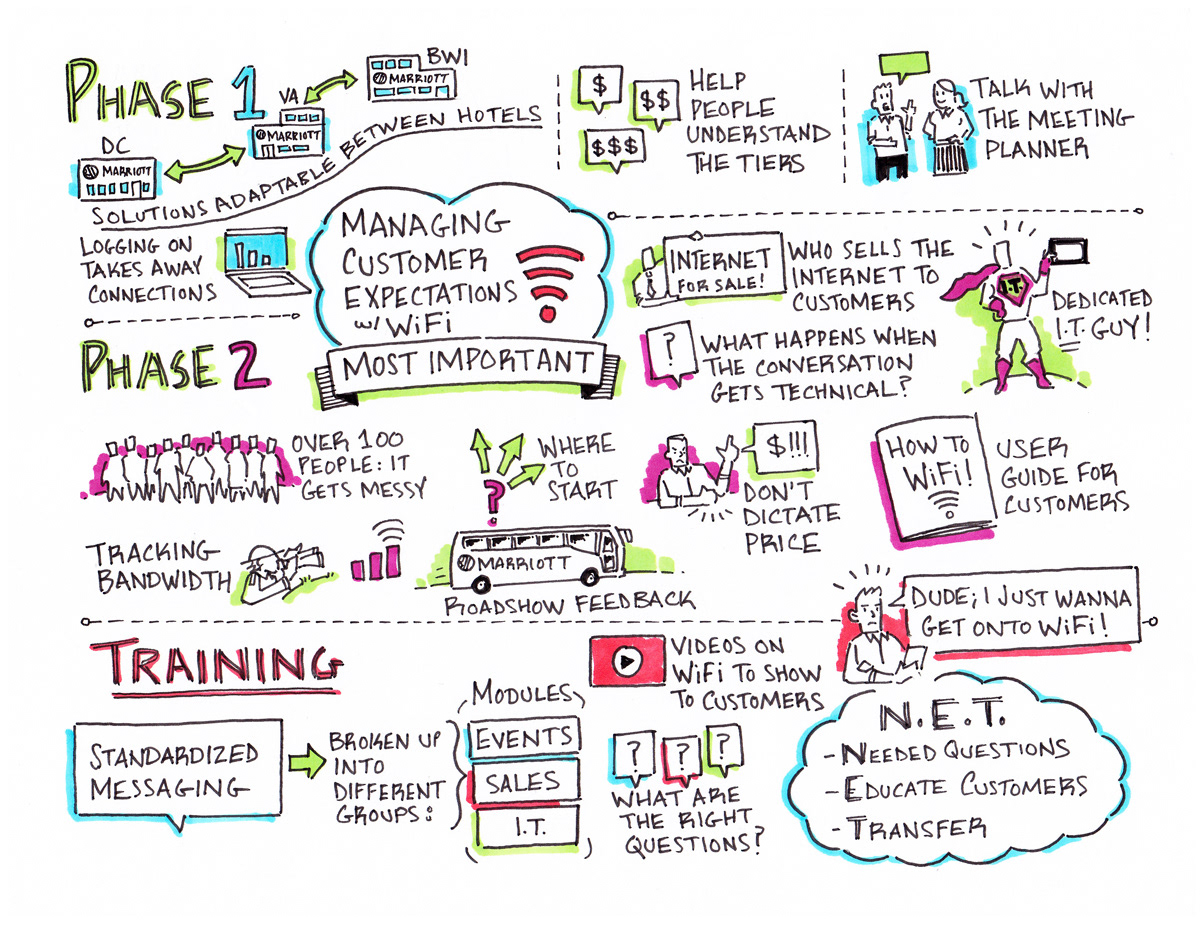 PHASE 1
BWI
MARRIOTT
VA
MARRIOTT
DC
MARRIOTT
SOLUTIONS ADAPTABLE BETWEEN HOTELS
$
$$
$$$
HELP
PEOPLE
UNDERSTAND
THE TIERS
TALK WITH
THE MEETING
PLANNER
LOGGING ON
TAKES AWAY
CONNECTIONS
MANAGING
CUSTOMER
EXPECTATIONS
w/ WiFi
MOST IMPORTANT
INTERNET
FOR SALE!
WHO SELLS THE
INTERNET TO
CUSTOMERS
I.T.
DEDICATED
I.T. GUY!
?
WHAT HAPPENS WHEN
THE CONVERSATION
GETS TECHNICAL?
PHASE 2
OVER 100
PEOPLE: IT
GETS MESSY
?
WHERE
TO
START
$!!!
DON'T
DICTATE
PRICE
HOW TO
WiFi!
USER
GUIDE FOR
CUSTOMERS
TRACKING
BANDWIDTH
MARRIOTT
ROADSHOW FEEDBACK
DUDE, I JUST WANNA
GET ONTO WiFi!
TRAINING
STANDARDIZED
MESSAGING
BROKEN UP
INTO
DIFFERENT
GROUPS:
MODULES
EVENTS
SALES
I.T.
VIDEOS ON
WiFi TO SHOW
TO CUSTOMERS
?
?
?
WHAT ARE
THE RIGHT
QUESTIONS?
N.E.T.
- NEEDED QUESTIONS
- EDUCATE CUSTOMERS
- TRANSFER